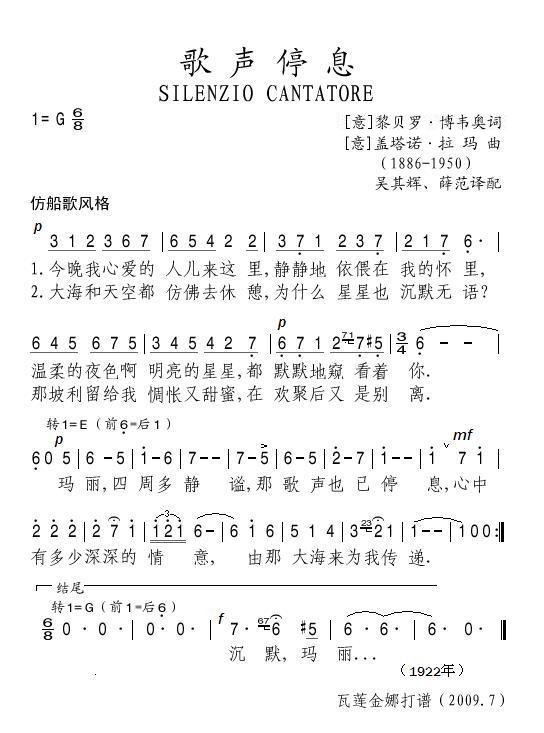 歌声停息
SILENZIO CANTATORE
1=G 6/8
[意]黎贝罗·博韦奥词
[意]盖塔诺·拉玛曲
(1886-1950)
吴其辉、薛范译配
仿船歌风格
p
3 1 2 3 6 7 | 6 5 4 2 2 | 3 7 1 2 3 1 | 2 2 1 7 6· |
1.今晚我心爱的 人儿来这 里,静静地 依偎在 我的怀 里,
2.大海和天空都 仿佛去休 憩,为什么 星星也 沉默无 语?
p
6 4 5 6 7 5 | 6 4 2 7 6 7 1 | 2 71 7 #5 | 3/4 6 - - |
温柔的夜色啊 明亮的星星,都 默默地窥 看着 你.
那坡利留给我 惆怅又甜蜜,在 欢聚后又 是别 离.
转1=E(前6=后1)
p mf
6 0 5 | 6 - 5 | 1 - 6 | 7 - - | 7 - 5 | 6 - 5 | 2 - 7 | 1 - - | 1 7 1 |
玛 丽,四 周多 静 谧,那 歌 声也 已 停 息,心中
2 2 2 | 2 7 1 | 3 1 2 1 6 - | 6 1 6 | 5 1 4 | 3 23 2 1 | 1 - - | 1 0 0 :‖
有多少深深的 情 意, 由那 大海来为我 传 递.
结尾
转1=G(前1=后6)
f
6/8 0· 0· | 0· 0· | 7· 67 6 #5 | 6· 6· | 6· 0· ‖
沉 默,玛 丽...
(1922年)
瓦莲金娜打谱(2009.7)